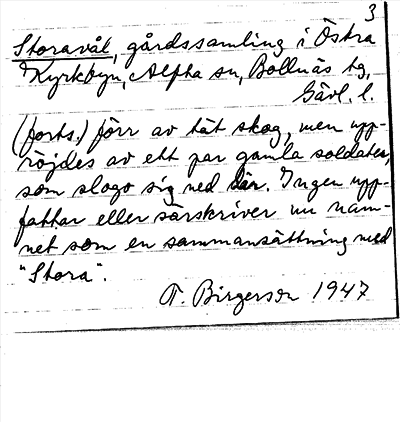 3
Storavål, gårdssamling i Östra
Kyrkbyn, Alfta sn, Bollnäs tg,
Gävl. l.
(forts.) förr av tät skog, men upp-
röjdes av ett par gamla soldater,
som slogo sig ned där. Ingen upp-
fattar eller särskriver nu nam-
net som en sammansättning med
"Stora".
T. Birgerson 1947